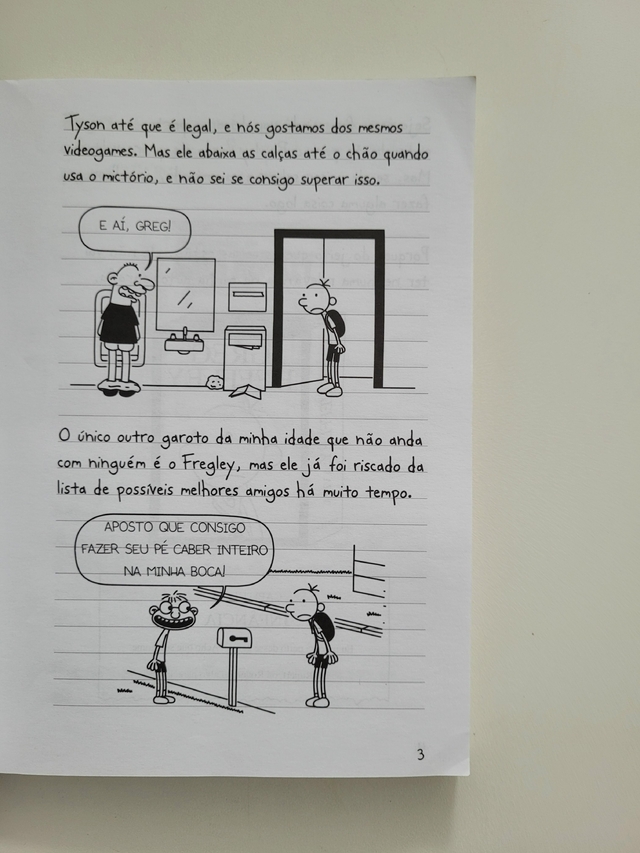 Tyson até que é legal, e nós gostamos dos mesmos
videogames. Mas ele abaixa as calças até o chão quando
usa o mictório, e não sei se consigo superar isso.
E AÍ, GREG!
O único outro garoto da minha idade que não anda
com ninguém é o Fregley, mas ele já foi riscado da
lista de possíveis melhores amigos há muito tempo.
APOSTO QUE CONSIGO
FAZER SEU PÉ CABER INTEIRO
NA MINHA BOCA!
3